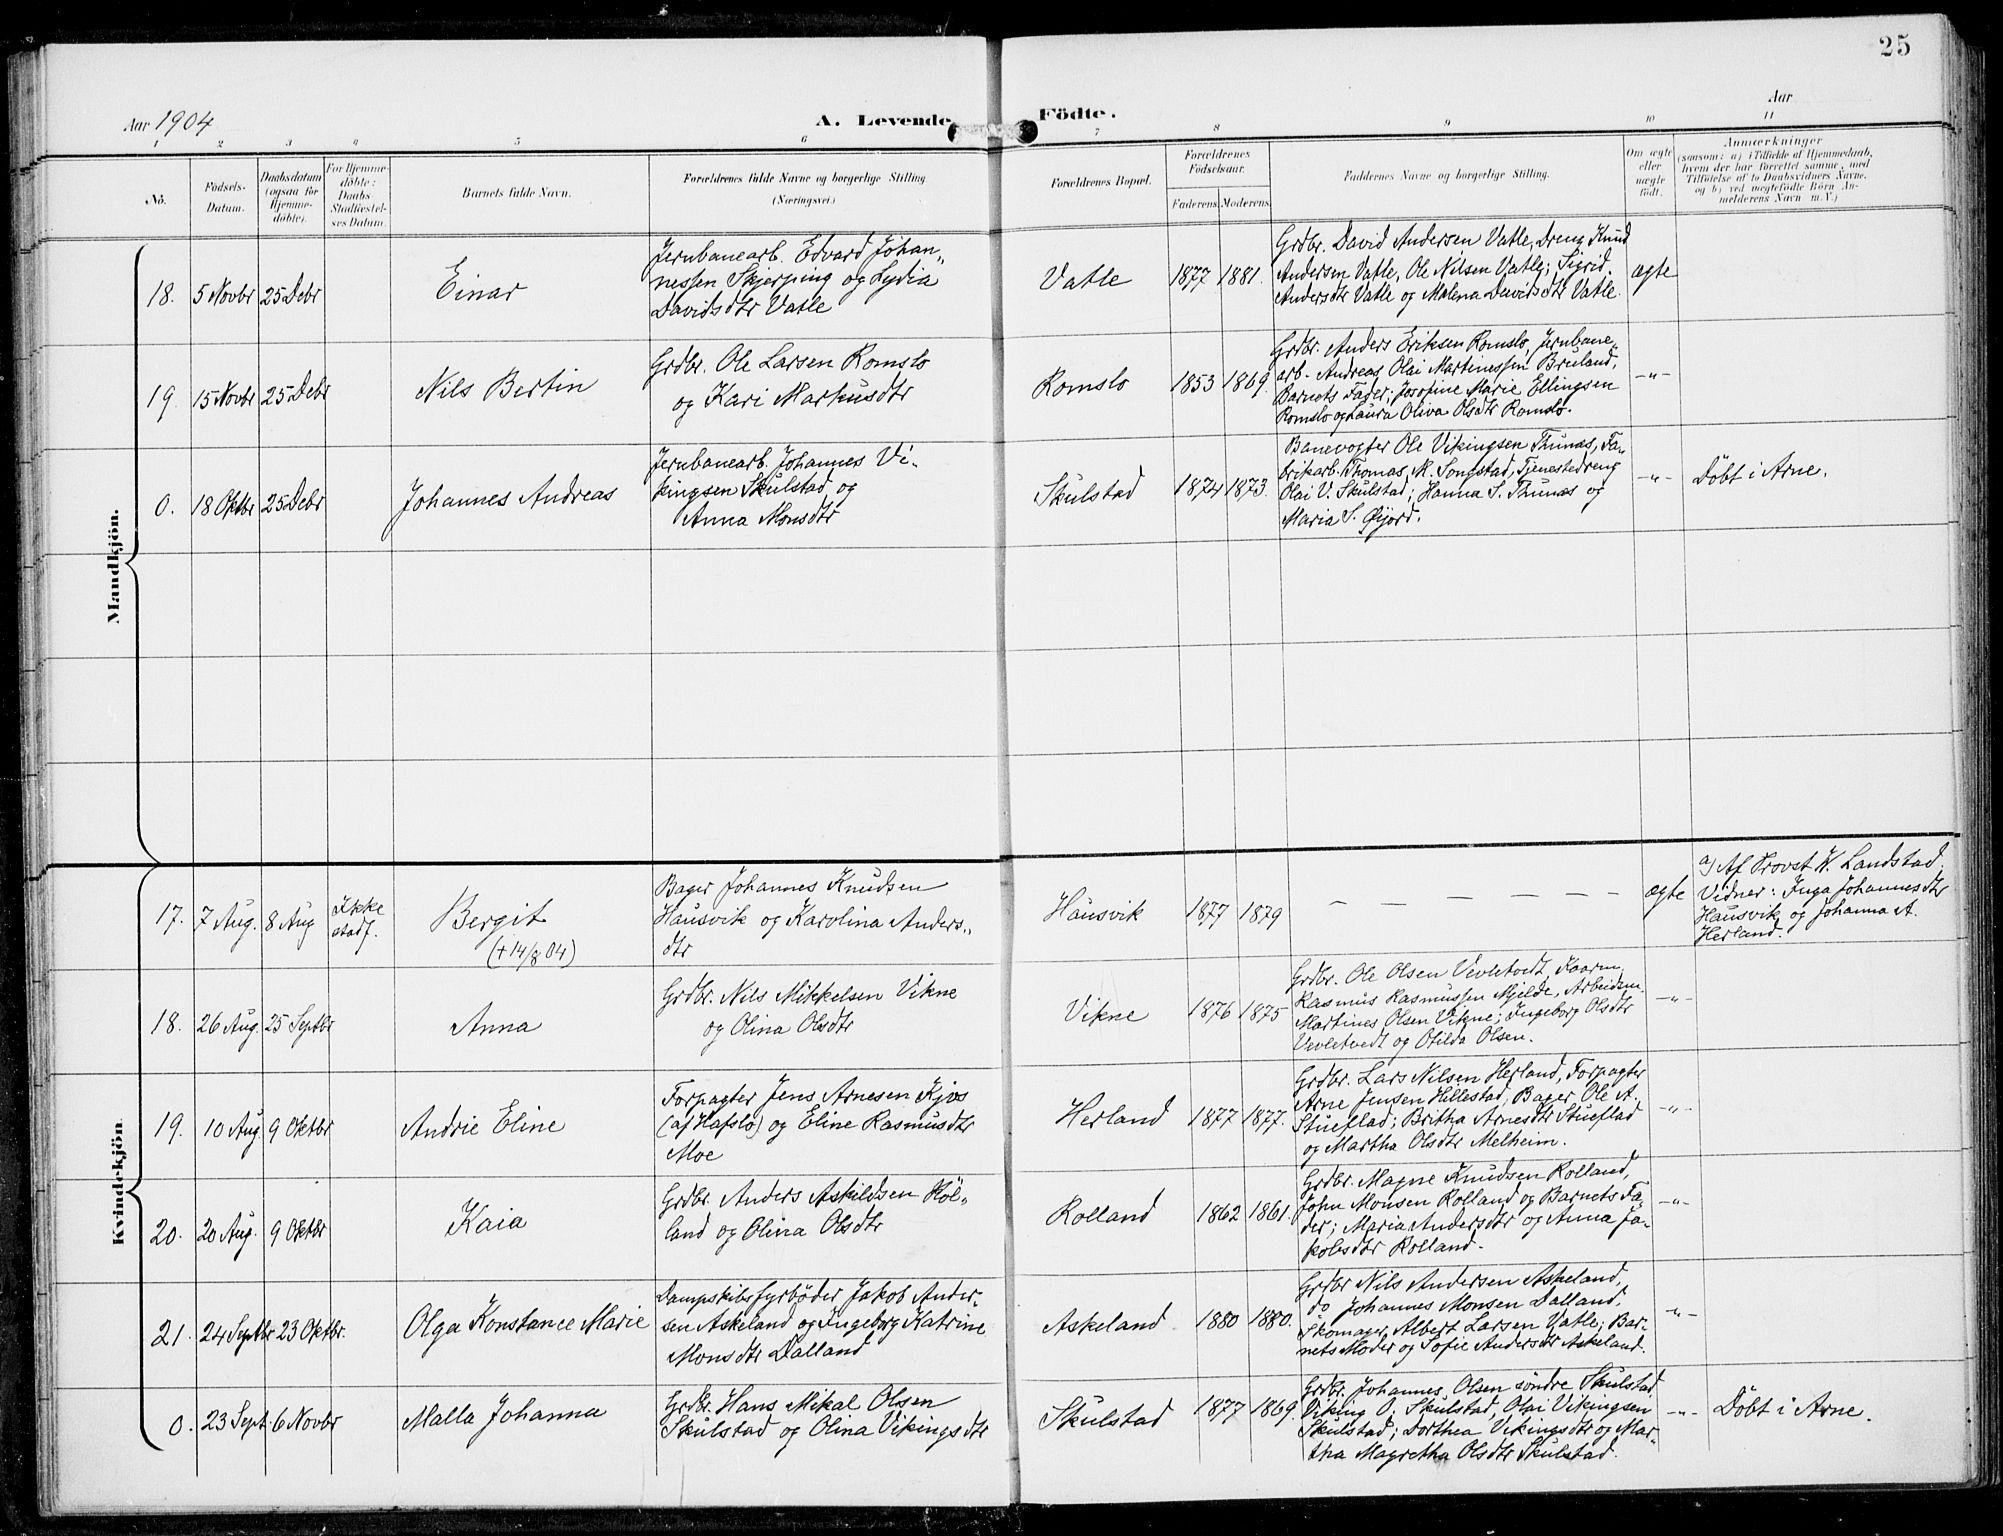 25
Aar 1904
A. Levende Födte.
Aar
1 2 3 4 5 6 7 8 9 10 11
No.
Födsels-
Datum.
Daabsdatum
(ogsaa for
Hjemme-
döbte).
For Hjemme-
döbte:
Daabs
Stadfæstel-
ses Datum.
Barnets fulde Navn.
Forældrenes fulde Navne og borgerlige Stilling
(Næringsvei.)
Forældrenes Bopæl.
Forældrenes
Födselsaar.
Faderens. Moderens.
Faddernes Navne og borgerlige Stilling.
Om ægte
eller
uægte
födt.
Anmærkninger
(saasom: a) i Tilfælde af Hjemmedaab,
hvem der har forrettet samme, med
Tilföielse af to Daabsvidners Navne,
og b) ved uægtefödte Börn An-
melderens Navn m.V.)
Mandkjön.
18. 5 Novbr 25 Debr
Einar
Jernbanearb. Edvard Johan-
nessen Skjerping og Lydia
Davidsdtr Vatle
Vatle 1877 1881.
Grdbr. David Andersen Vatle, Dreng Knud
Andersen Vatle, Ole Nilsen Vatle; Sigrid
Andersdtr Vatle og Malena Davidsdtr Vatle.
ægte
19. 15 Novbr 25 Debr
Nils Bertin
Grdbr. Ole Larsen Romslo
og Kari Markusdtr
Romslo 1853 1869.
Grdbr. Anders Eriksen Romslo, Jernbane-
arb. Andreas Olai Martinessen Bruland,
Barnets Fader; Josefine Marie Ellingsen
Romslo og Laura Oliva Olsdtr Romslo.
—"—
0. 18 Oktbr 25 Debr
Johannes Andreas
Jernbanearb. Johannes Vi-
kingsen Skulstad og
Anna Monsdtr
Skulstad 1874 1873.
Banevogter Ole Vikingsen Thunæs, Fa-
brikarb. Thomas M. Songstad, Tjenestedreng
Olai V. Skulstad; Hanna S. Thunæs og
Maria S. Öijord.
—"— Döbt i Arne.
Kvindekjön.
17. 7 Aug. 8 Aug
Ikke
stadf.
Bergit
(+14/8 04)
Bager Johannes Knudsen
Hausvik og Karolina Anders-
dtr
Hausvik 1877 1879
— — — — — —
ægte
a) Af Provst K. Landstad.
Vidner: Inga Johannesdtr
Hausvik og Johanna A.
Herland.
18. 26 Aug. 25 Septbr
Anna
Grdbr. Nils Mikkelsen Vikne
og Olina Olsdtr
Vikne 1876 1875
Grdbr. Ole Olsen Vevletvedt, Kaarm.
Rasmus Rasmussen Mjelde, Arbeidsm.
Martines Olsen Vikne; Ingeborg Olsdtr
Vevletvedt og Otilda Olsen.
—"—
19. 10 Aug 9 Oktbr
Andrie Eline
Forpagter Jens Arnesen Kjos
(af Hafslo) og Eline Rasmusdtr
Moe
Herland 1877 1877.
Grdbr. Lars Nilsen Herland, Forpagter
Arne Jensen Hillestad, Bager Ole A.
Stueflad; Britha Arnesdtr Stueflad
og Martha Olsdtr Melheim.
—"—
20. 20 Aug. 9 Oktbr
Kaia
Grdbr. Anders Askildsen Rol-
land og Olina Olsdtr
Rolland 1862 1861.
Grdbr. Magne Knudsen Rolland,
John Monsen Rolland og Barnets Fa-
der; Maria Andersdtr og Anna Ja-
kobsdtr Rolland.
—"—
21. 24 Septbr 23 Oktbr.
Olga Konstance Marie
Dampskibsfyrböder Jakob Ander-
sen Askeland og Ingeborg Katrine
Monsdtr Dalland
Askeland 1880 1880.
Grdbr Nils Andersen Askeland,
do Johannes Monsen Dalland,
Skomager Albert Larsen Vatle; Bar-
nets Moder og Sofie Andersdtr Askeland.
—"—
0. 23 Sept. 6 Novbr
Malla Johanna
Grdbr. Hans Mikal Olsen
Skulstad og Olina Vikingsdtr
Skulstad 1877 1869.
Grdbr. Johannes Olsen söndre Skulstad
Viking O. Skulstad, Olai Vikingsen
Skulstad; Dorthea Vikingsdtr og Mar-
tha Magretha Olsdtr Skulstad.
—"— Döbt i Arne.